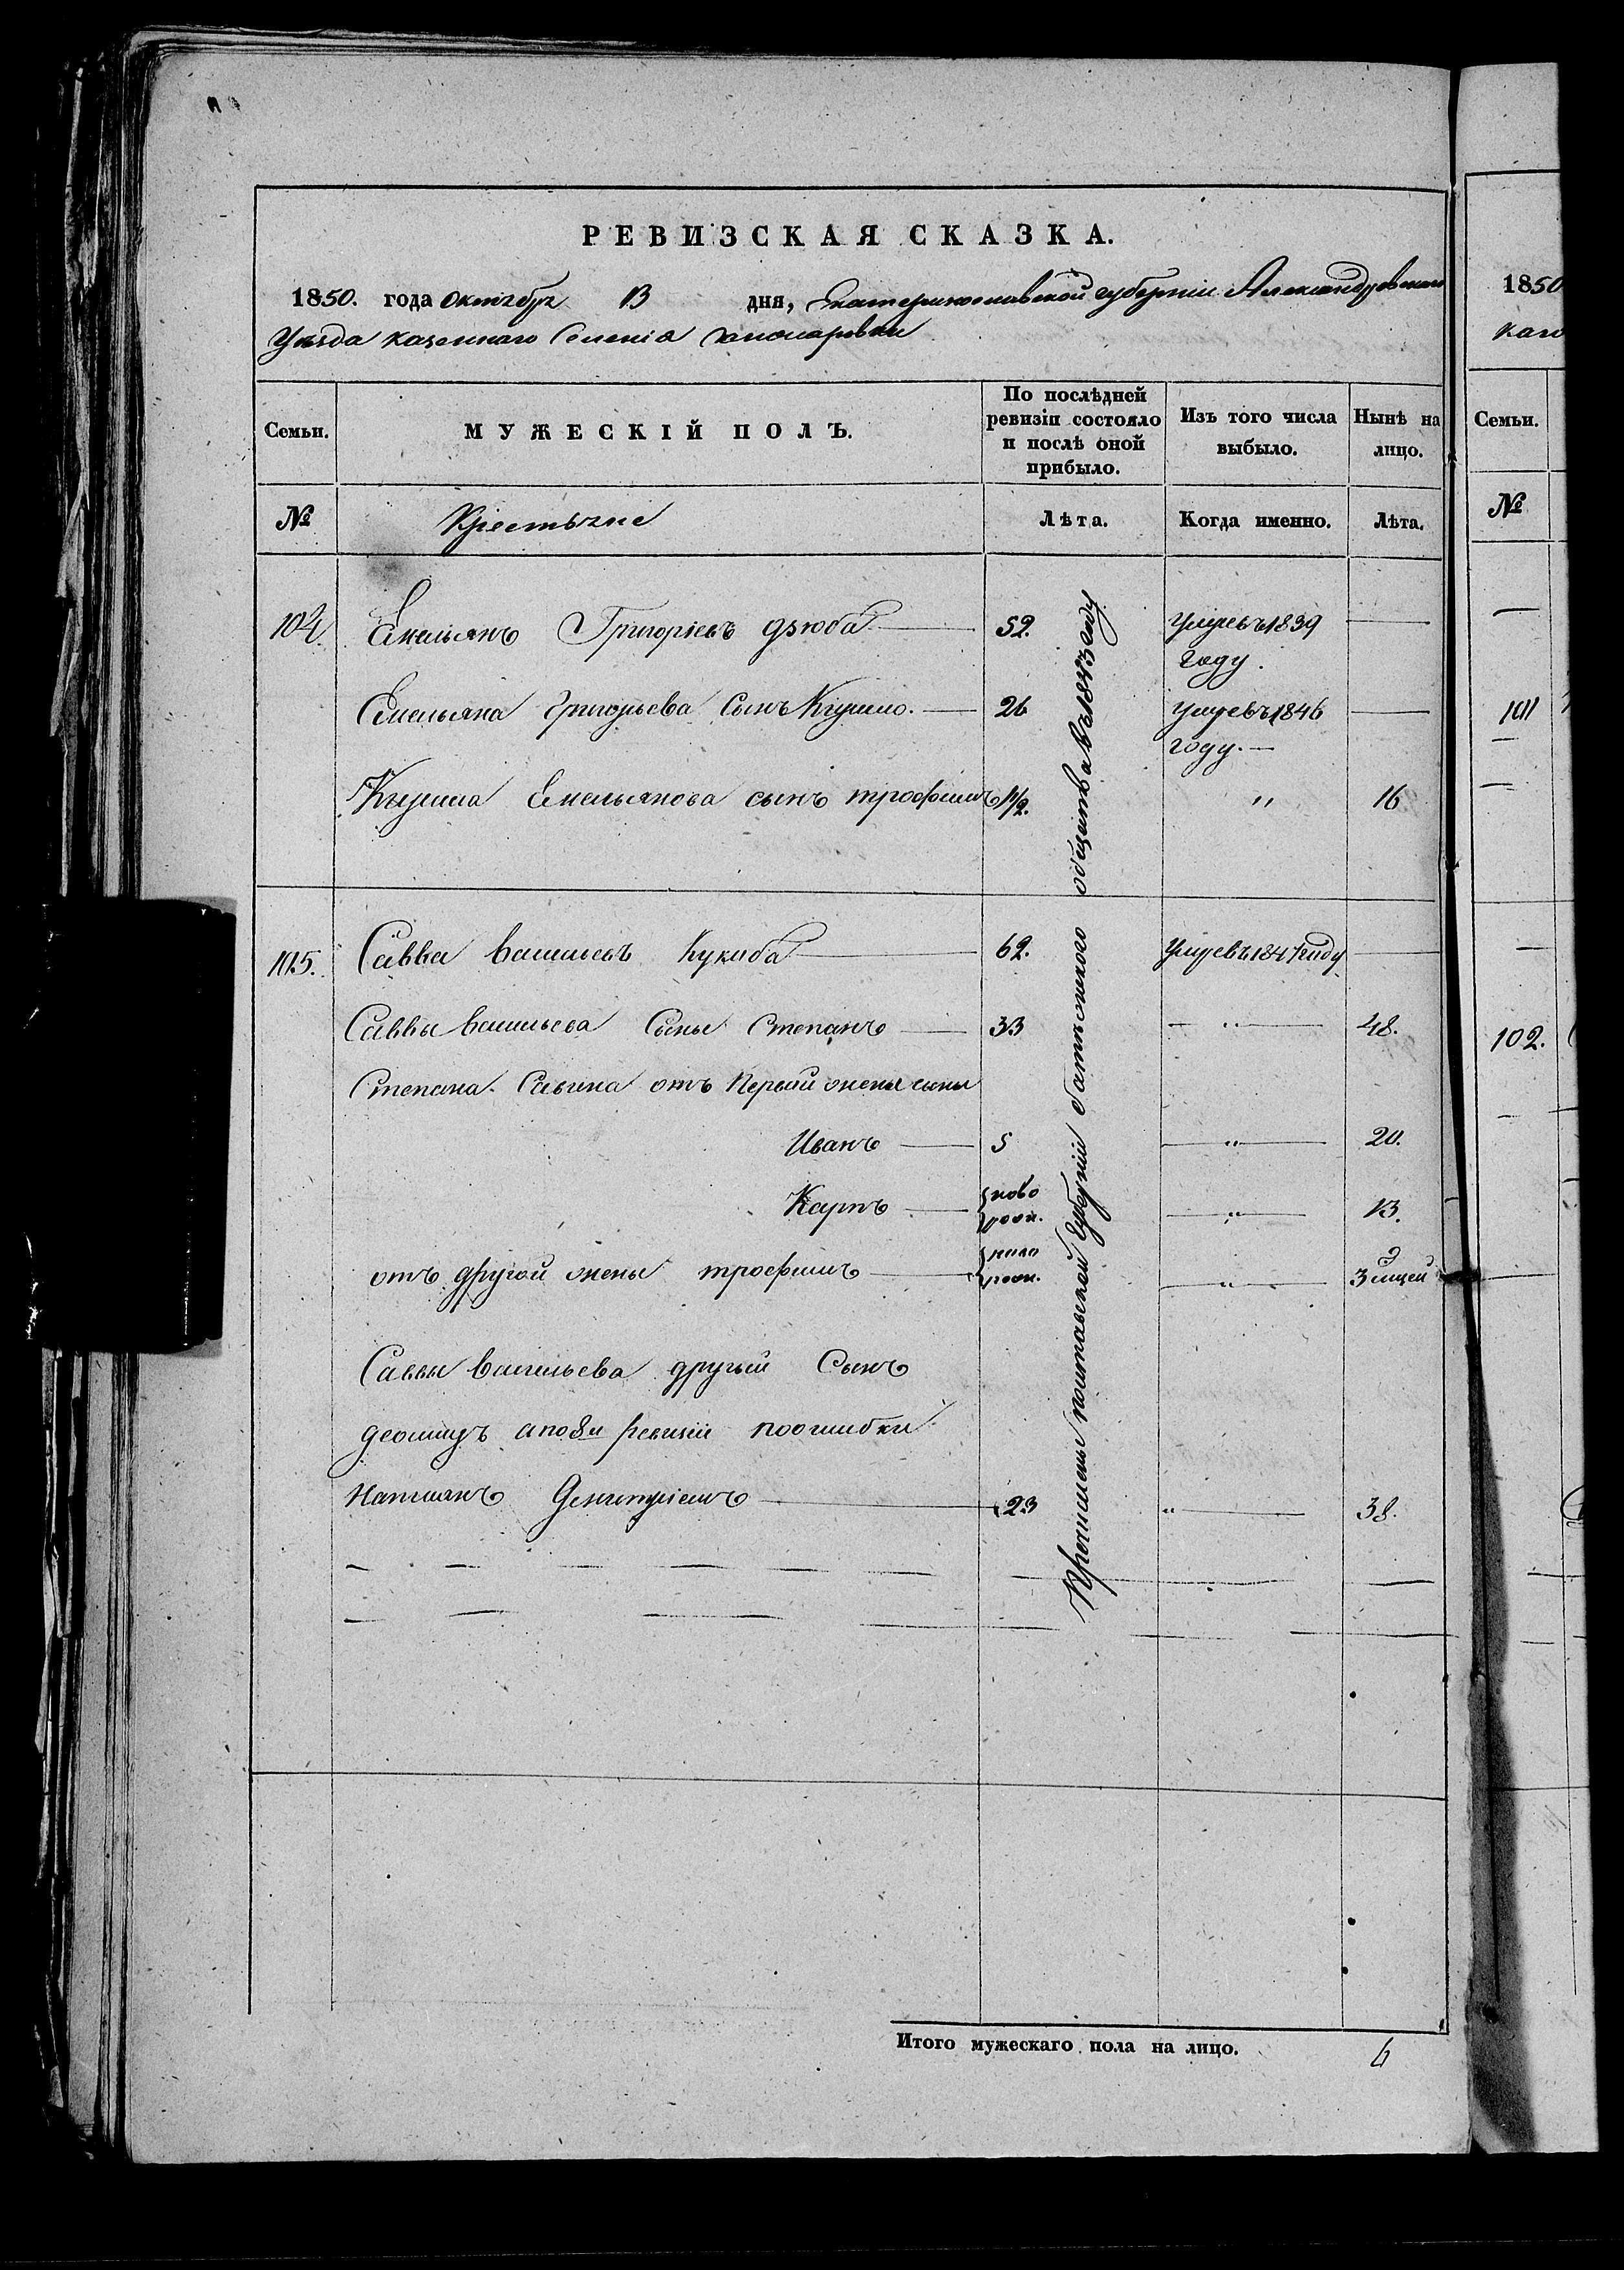 РЕВИЗСКАЯ СКАЗКА.
1850. года октября 13 дня, Екатеринославской губернии Александровскаго
Уезда казеннаго Селенія
Семьи. МУЖЕСКІЙ ПОЛЪ. По послѣдней ревизіи состояло и послѣ оной прибыло. Изъ того числа выбыло. Нынѣ на лицо.
№ Крестьяне Лѣта. Когда именно. Лѣта.
104. Емельянъ Григоріевъ дзюба 52. умревъ 1839
году.
Емельяна григорьева Сынъ Кузьма. 26 умревъ 1846
году.
Кузьма Емельянова сынъ трофимъ 1/2. " 16
105. Савва васильевъ Кукоба 62. умревъ 184 году
Саввы васильева Сыны Степанъ 33 " 48.
Степана Савина отъ Первой жены сыны
Иванъ 5 " 20.
Карпъ ново рож. " 13.
отъ другой жены трофимъ ново рож. " 3
Саввы васильева другый Сынъ
деомидъ а по 8й ревизіи по ошибки
Написанъ 23 " 38.
Причислены полтавской губерніи общества въ 1843 году
Итого мужескаго пола на лицо. 6
1850
каго
Семьи.
№
101
102.